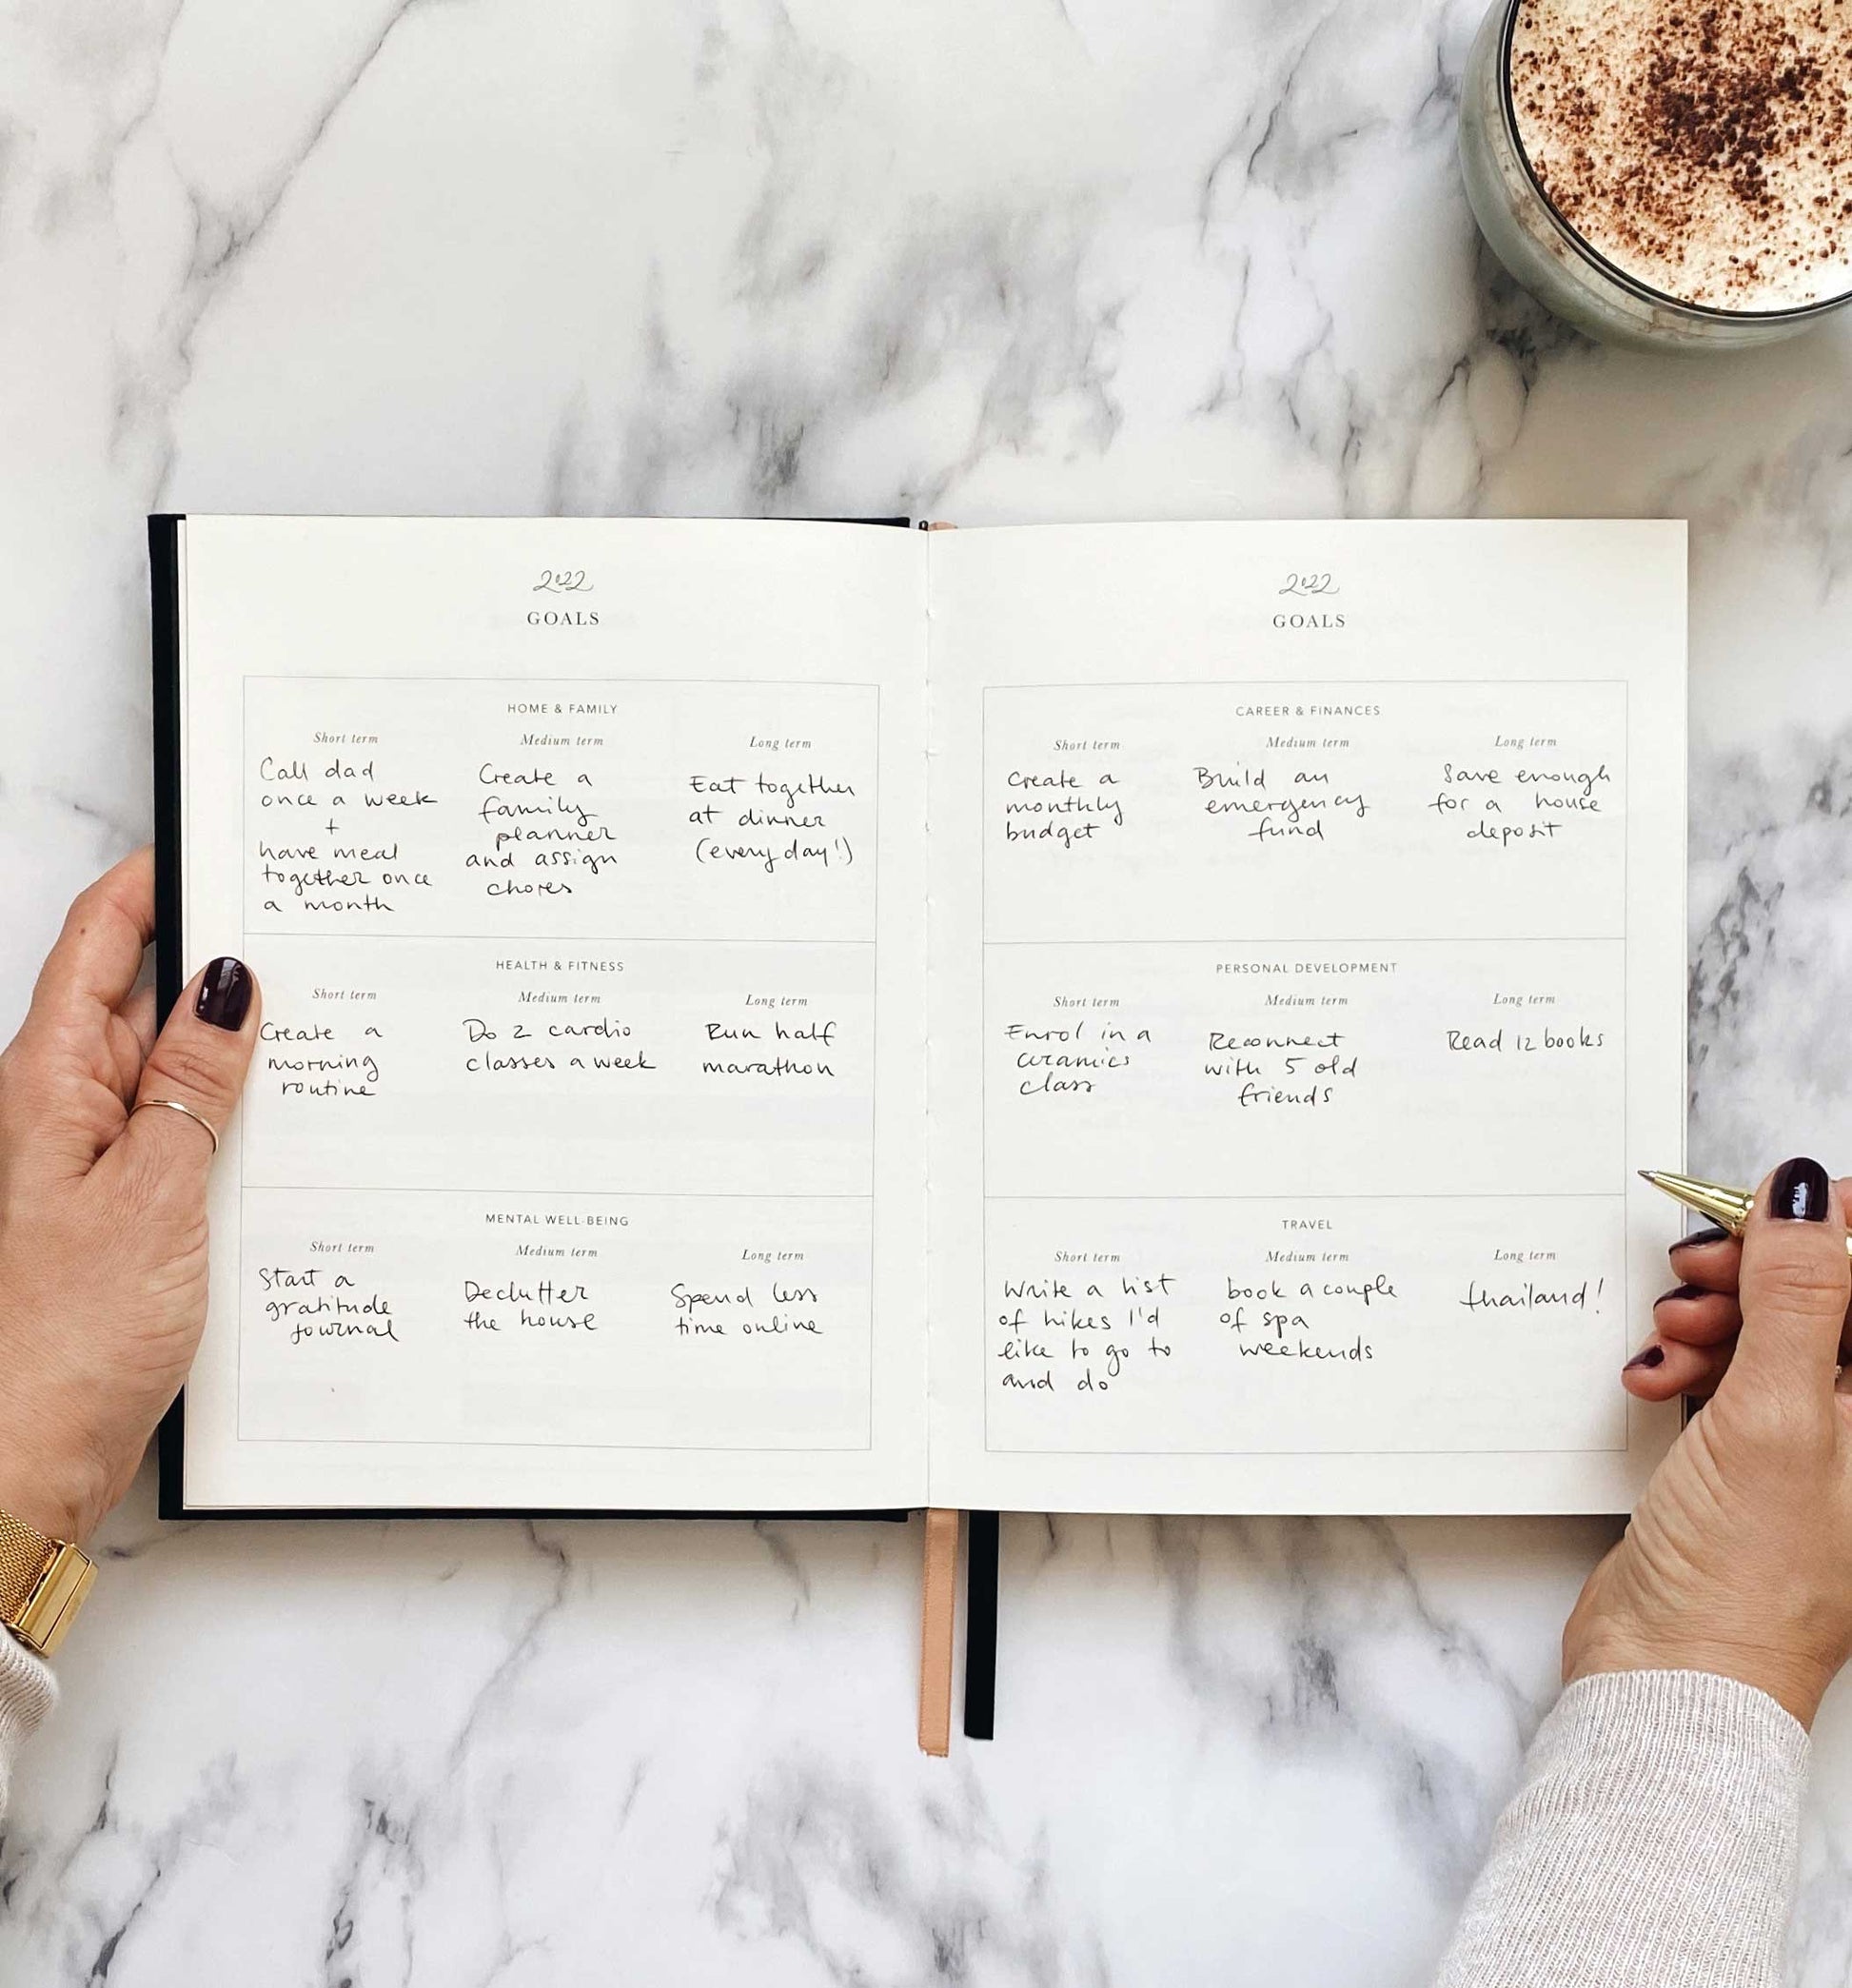 2022
GOALS
HOME & FAMILY
Short term
Call dad
once a week
+
have meal
together once
a month
Medium term
Create a
family
planner
and assign
chores
Long term
Eat together
at dinner
(every day!)
HEALTH & FITNESS
Short term
Create a
morning
routine
Medium term
Do 2 cardio
classes a week
Long term
Run half
marathon
MENTAL WELL-BEING
Short term
Start a
gratitude
journal
Medium term
Declutter
the house
Long term
Spend less
time online
2022
GOALS
CAREER & FINANCES
Short term
Create a
monthly
budget
Medium term
Build an
emergency
fund
Long term
Save enough
for a house
deposit
PERSONAL DEVELOPMENT
Short term
Enrol in a
ceramics
class
Medium term
Reconnect
with 5 old
friends
Long term
Read 12 books
TRAVEL
Short term
Write a list
of hikes I'd
like to go to
and do
Medium term
book a couple
of spa
weekends
Long term
thailand!